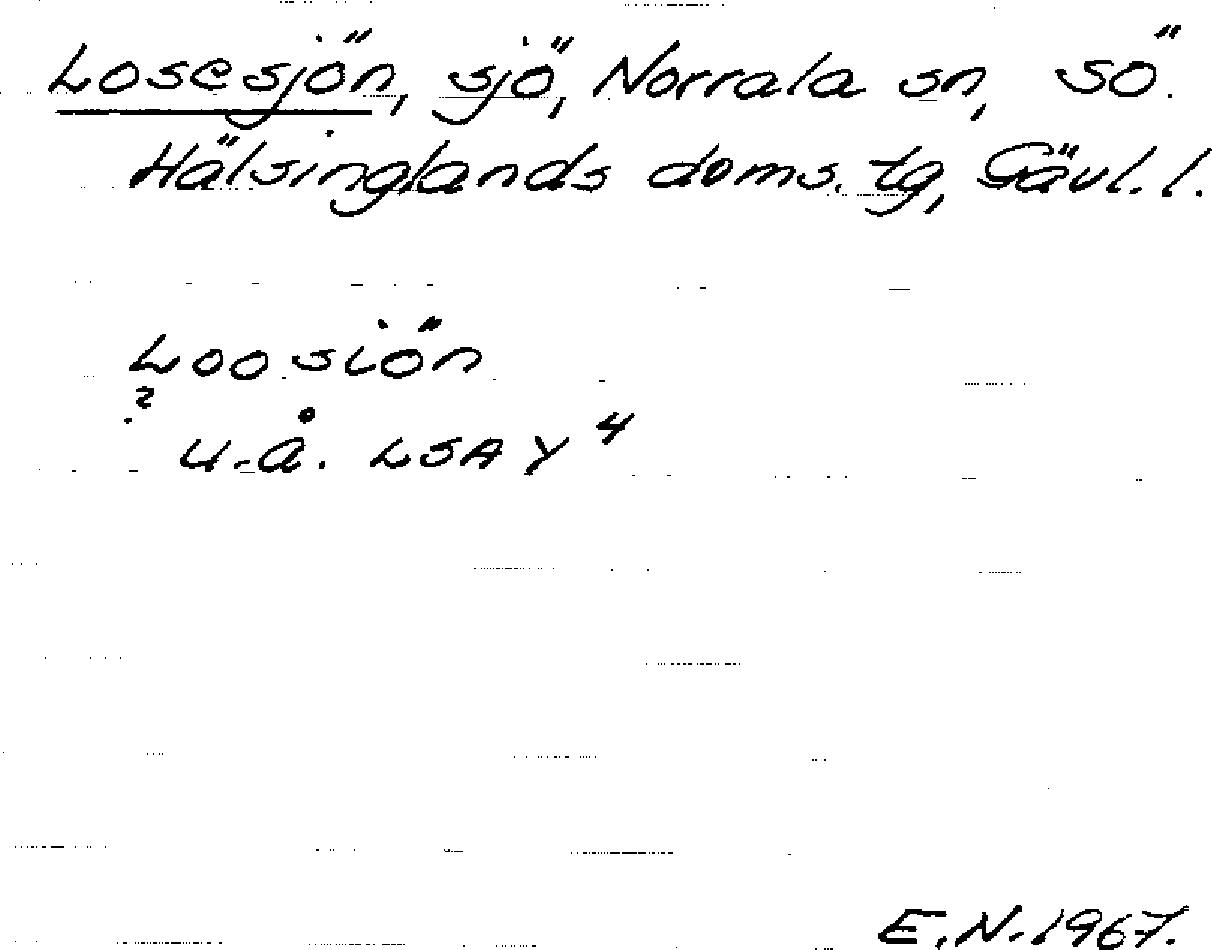 Losesjön, sjö, Norrala sn, sö.
Hälsinglands doms. tg, Gävl. l.
Loosiön
?
u.å. LSA Y 4
E.N. 1967.